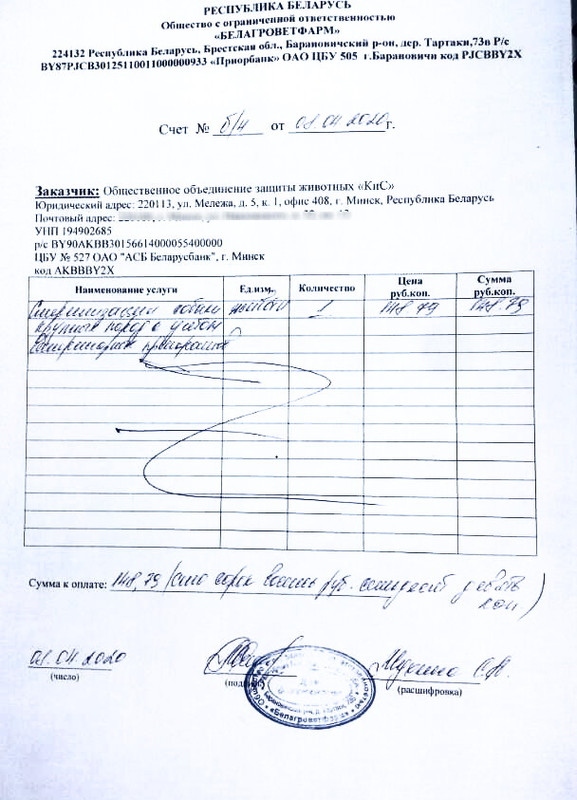 РЕСПУБЛИКА БЕЛАРУСЬ
Общество с ограниченной ответственностью
«БЕЛАГРОВЕТФАРМ»
224132 Республика Беларусь, Брестская обл., Барановичский р-он, дер. Тартаки,73в Р/с
BY87PJCB30125110011000000933 «Приорбанк» ОАО ЦБУ 505 г.Барановичи код PJCBBY2X
Счет № б/н от 01.04.2020г.
Заказчик: Общественное объединение защиты животных «КиС»
Юридический адрес: 220113, ул. Мележа, д. 5, к. 1, офис 408, г. Минск, Республика Беларусь
Почтовый адрес:
УНП 194902685
р/с BY90AKBB30156614000055400000
ЦБУ № 527 ОАО "АСБ Беларусбанк", г. Минск
код AKBBBY2X
Наименование услуги Ед.изм. Количество Цена руб.коп. Сумма руб.коп.
Стерилизация собаки 1 148.79 148.79
крупная порода с учетом
ветеринарных препаратов
Сумма к оплате: 148,79 (сто сорок восемь руб. семьдесят девять
коп)
01.04.2020
(число) (подпись) (расшифровка)
«Белагроветфарм»